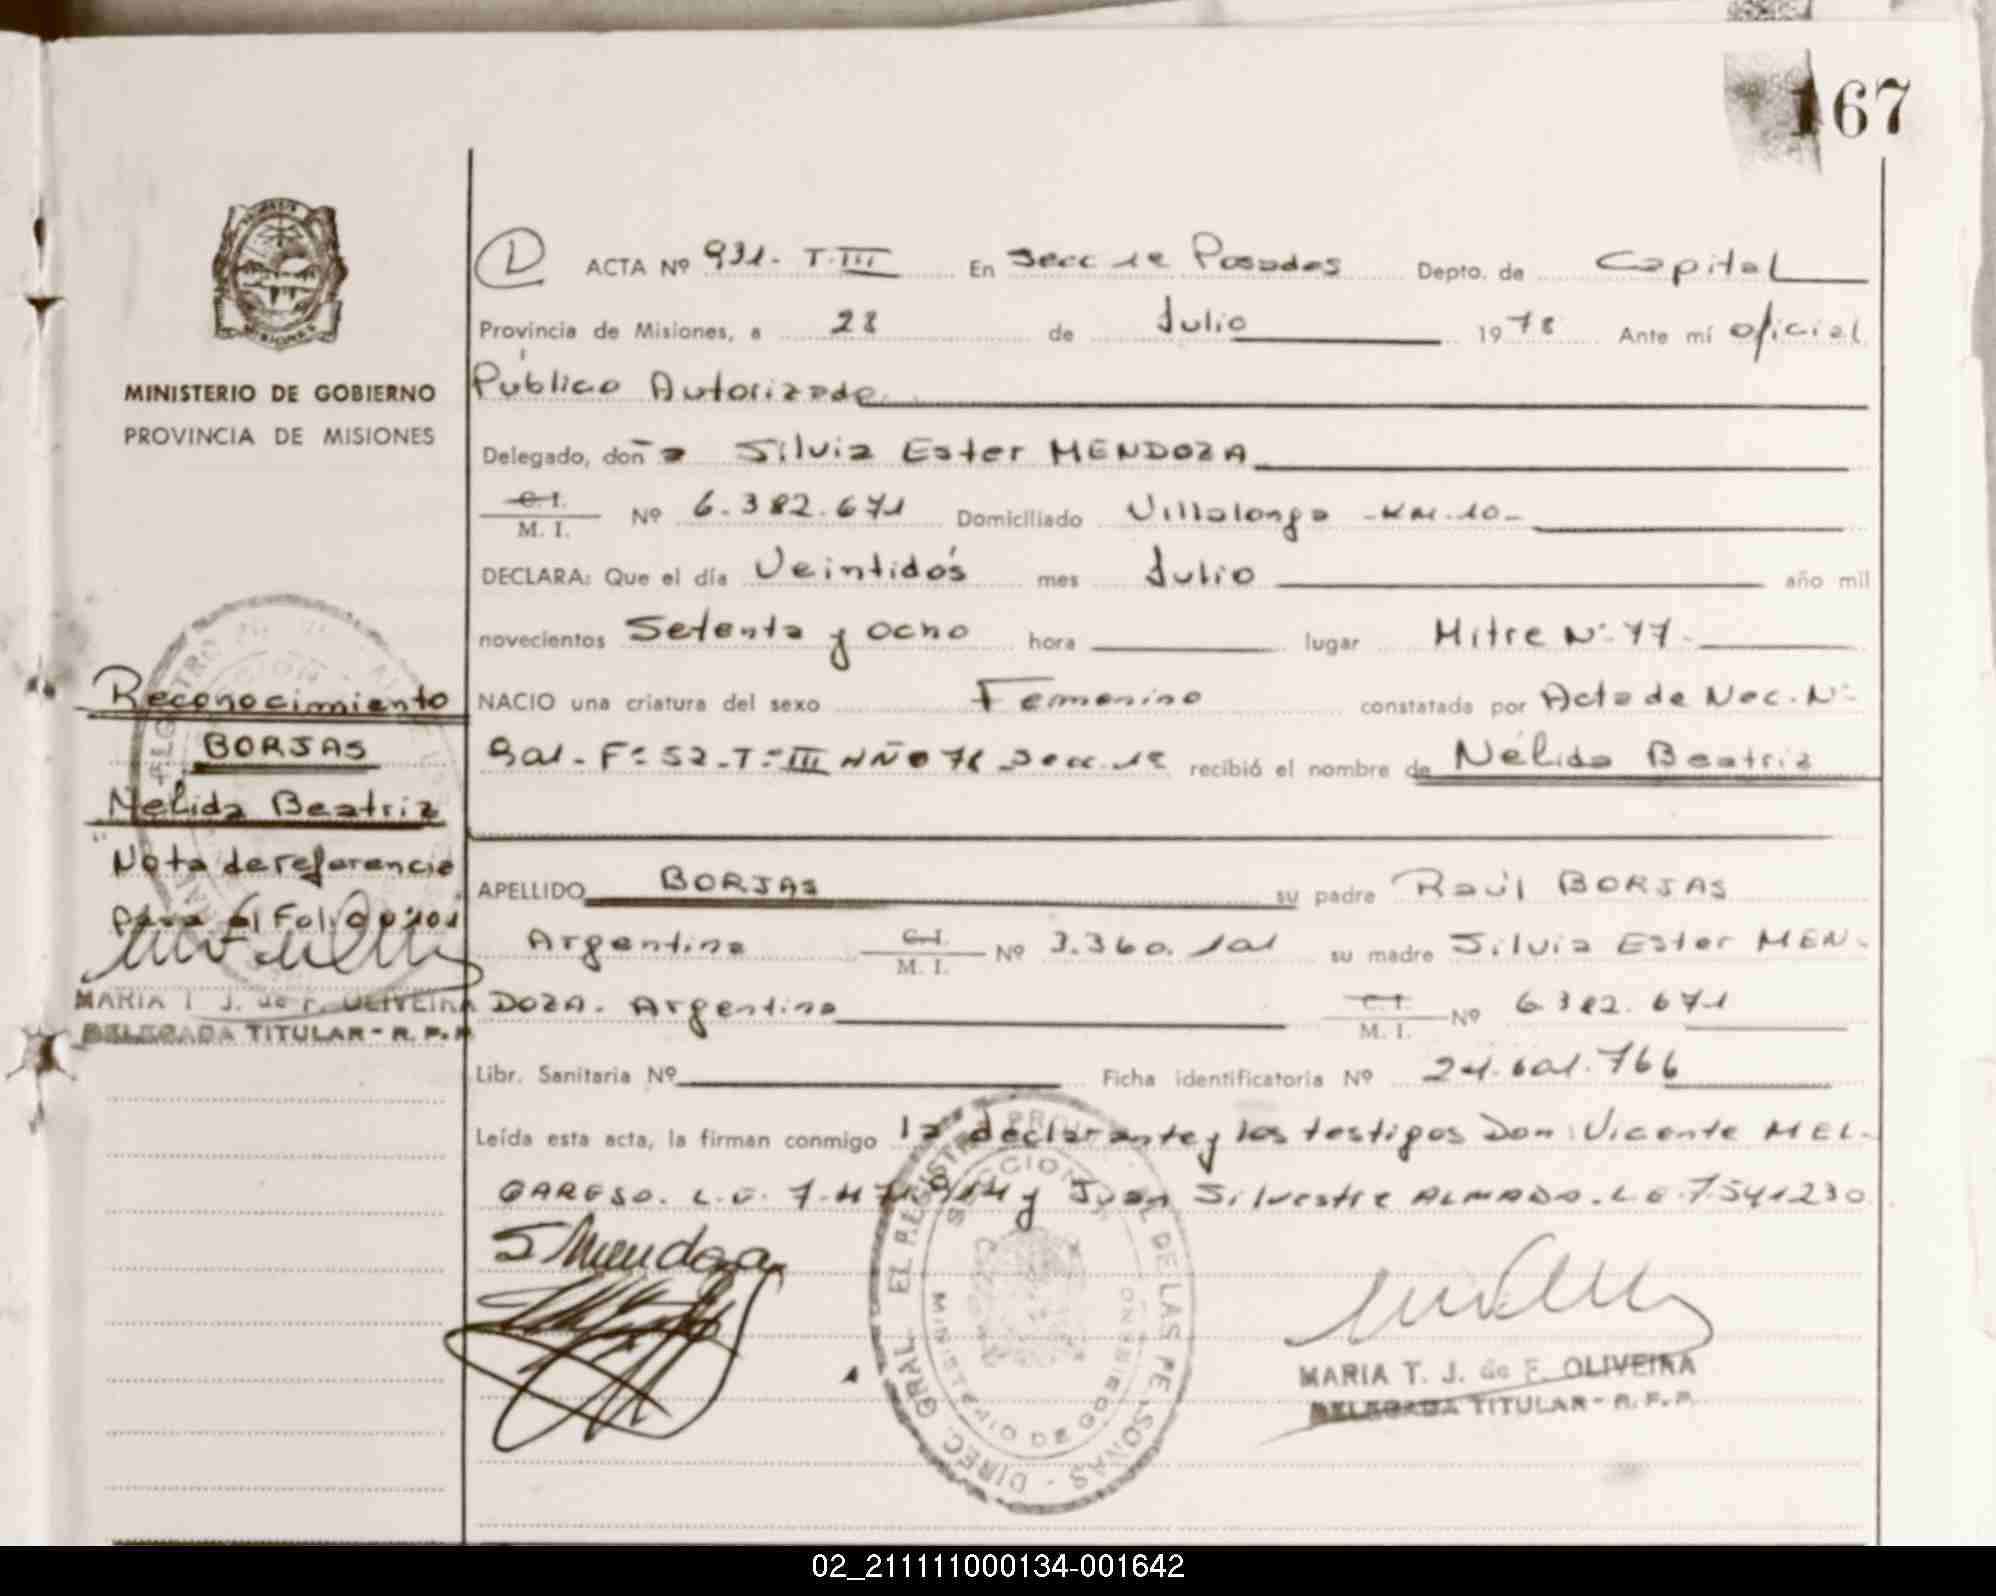 167
MINISTERIO DE GOBIERNO
PROVINCIA DE MISIONES
ACTA Nº 931- T-III En Secc 1ª Posadas Depto. de Capital
Provincia de Misiones, a 28 de Julio 1978 Ante mí oficial
Público Autorizado
Delegado, doña Silvia Ester MENDOZA
C. I. / M. I. Nº 6.382.671 Domiciliado Villalonga -KM.10-
DECLARA: Que el día Veintidós mes Julio año mil
novecientos Setenta y ocho hora lugar Mitre Nº 77-
NACIO una criatura del sexo Femenino constatada por Acta de Nac. Nº
901- Fº 52-Tº III AÑO 78 Secc. 1ª recibió el nombre de Nélida Beatriz
APELLIDO BORJAS su padre Raúl BORJAS
Argentino C. I. / M. I. Nº 3.360.101 su madre Silvia Ester MEN-
DOZA- Argentina C. I. / M. I. Nº 6.382.671
Libr. Sanitaria Nº Ficha identificatoria Nº 24.601.766
Leída esta acta, la firman conmigo la declarante y los testigos Don: Vicente MEL-
GAREJO. L.E. y Juan Silvestre ALMADA. L.E. 7.541230
S Mendoza
MARIA T. J. de F. OLIVEIRA
DELEGADA TITULAR - R. P. P.
Reconocimiento
BORJAS
Nélida Beatriz
Nota de referencia
para el Folio
MARIA T. J. de F. OLIVEIRA
DELEGADA TITULAR - R. P. P.
DIREC. GRAL. EL REGISTRO PROV. DE LAS PERSONAS
SECCION
MINISTERIO DE GOBIERNO
02_211111000134-001642